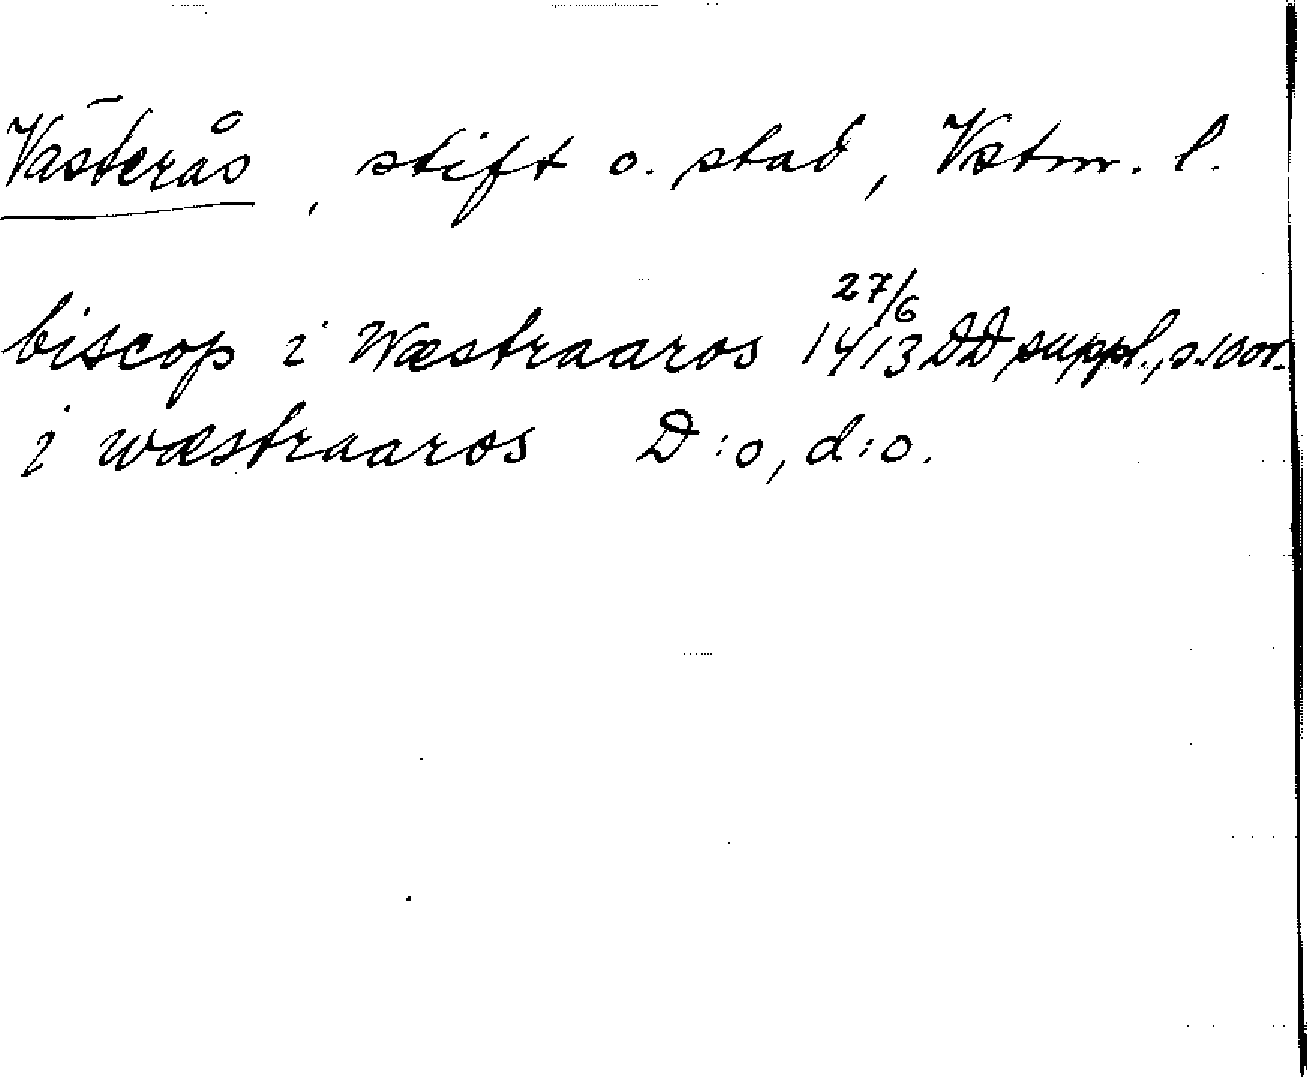 Västerås, stift o. stad, Vstm. l.
biscop i Wæstraaros 27/6 1413 DD suppl., s.
i wæstraaros D:o, d:o.